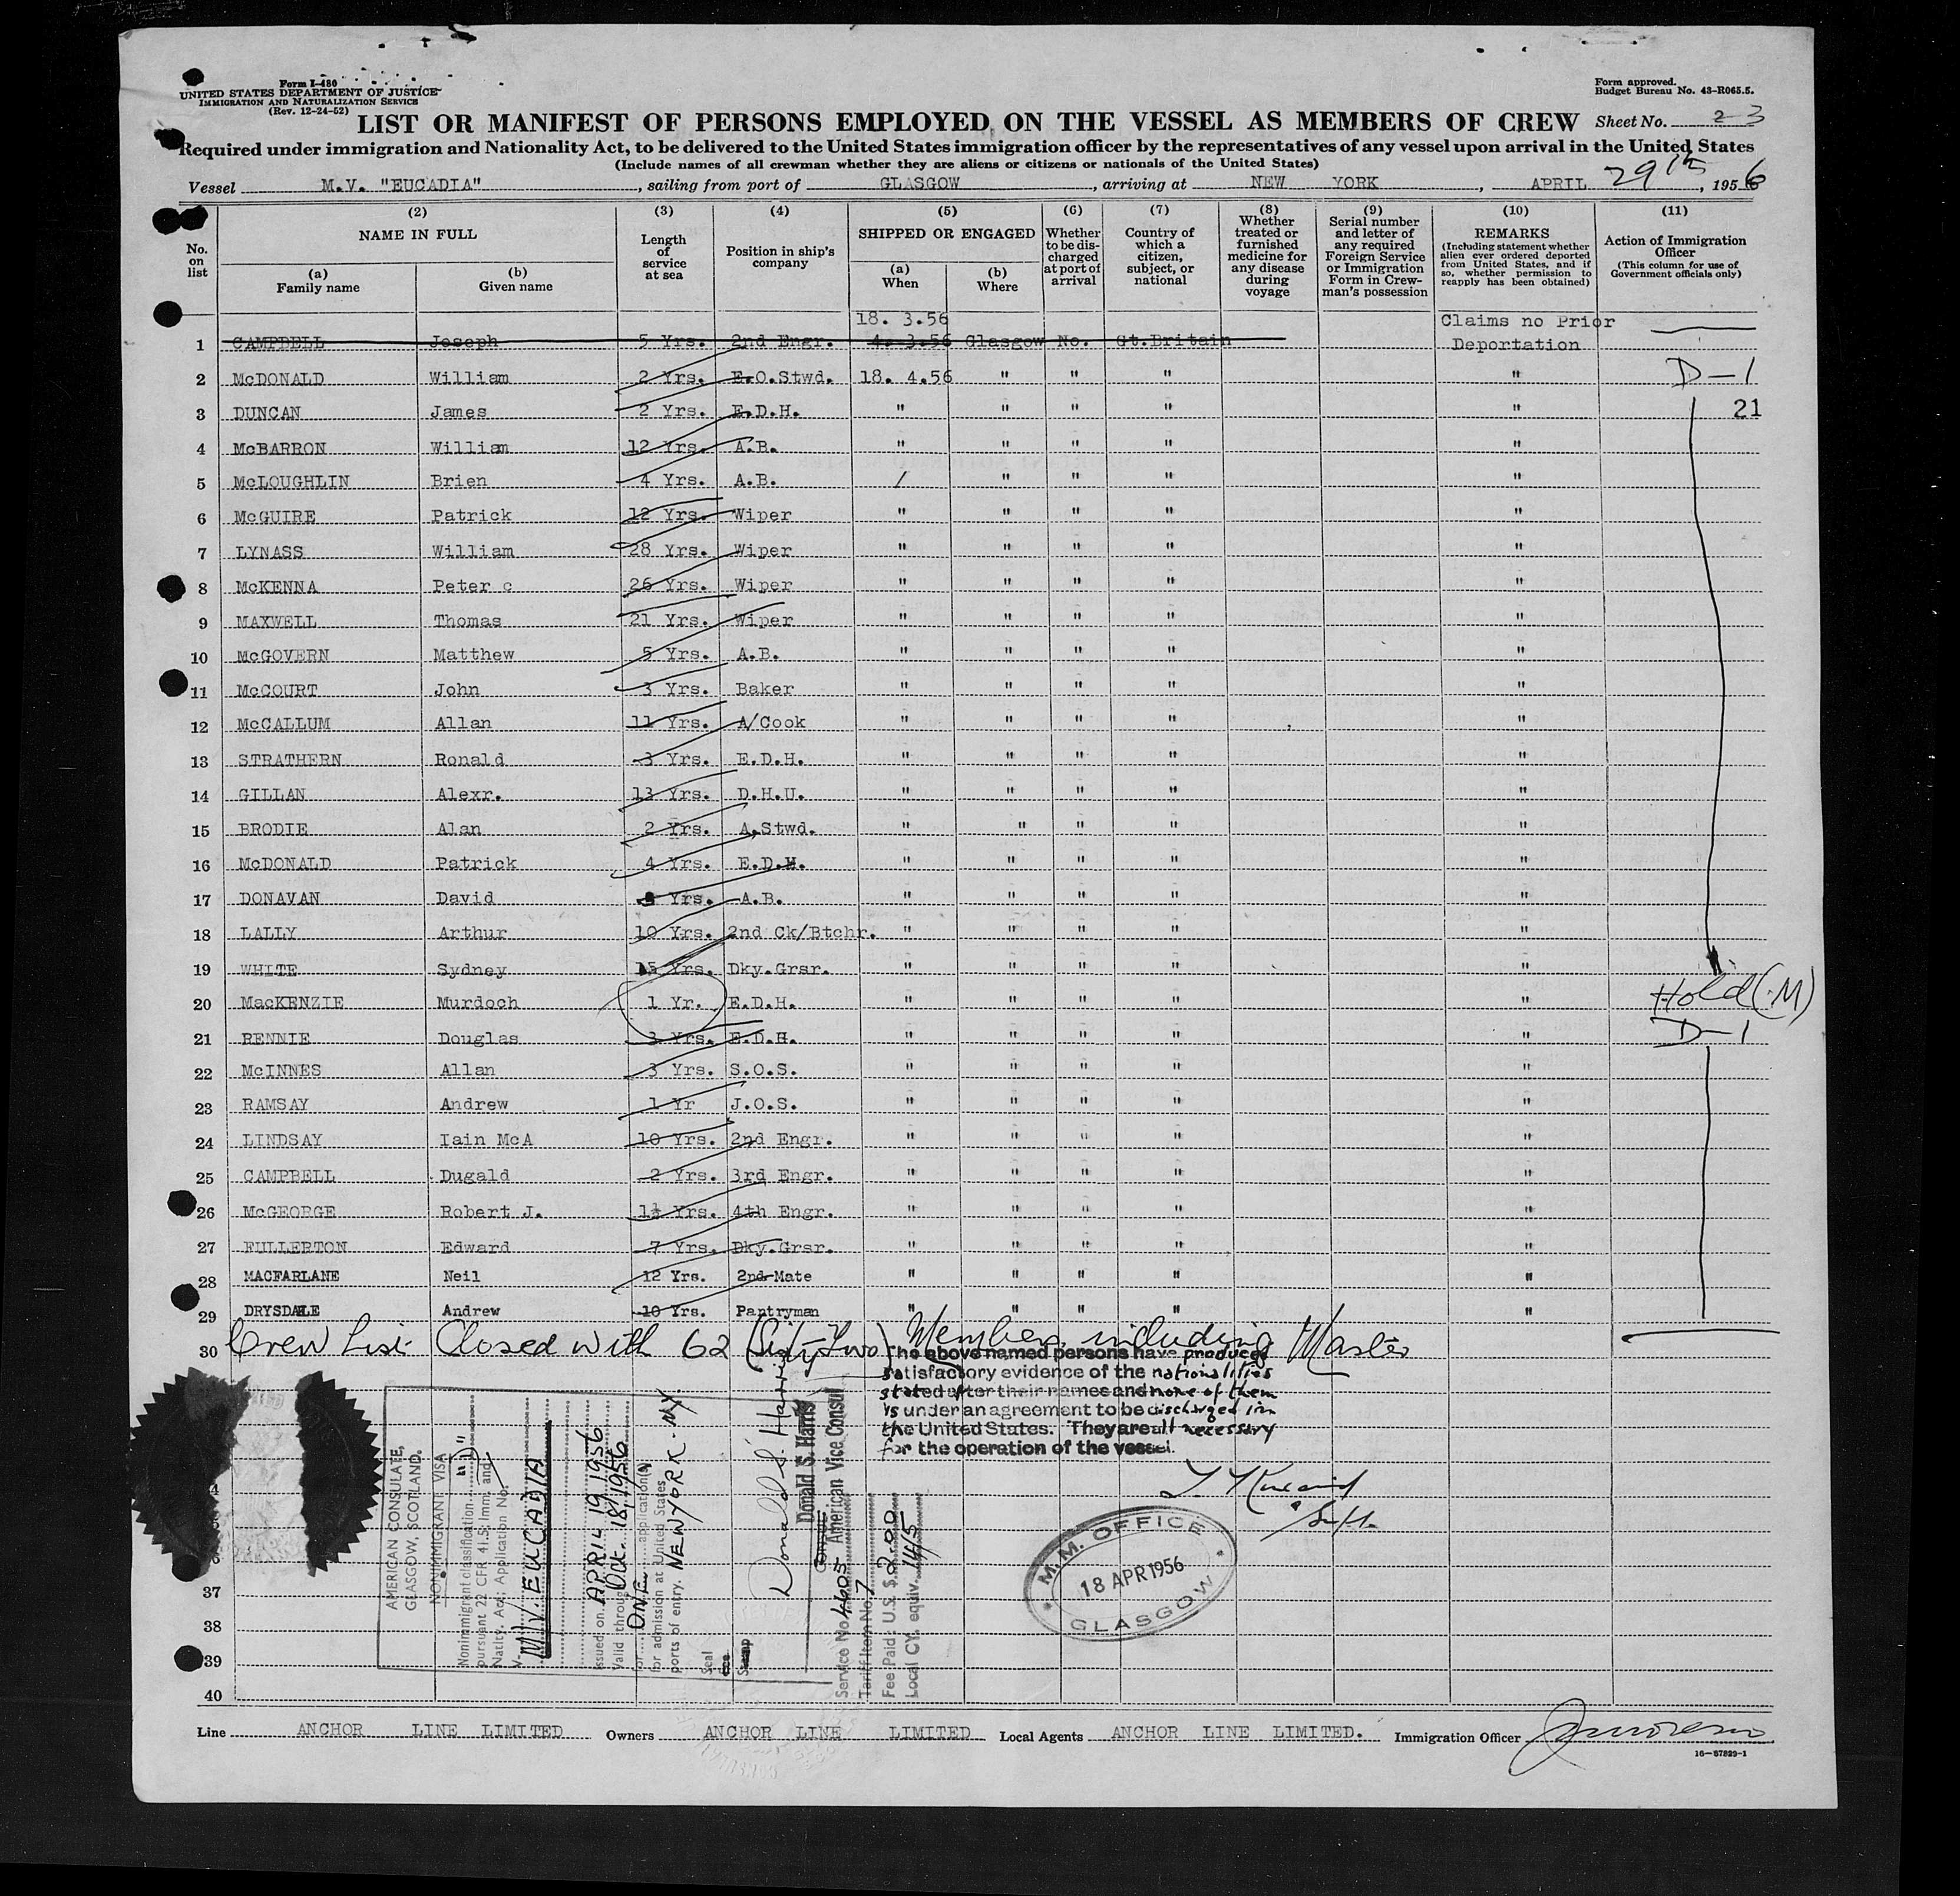 Form I-480
UNITED STATES DEPARTMENT OF JUSTICE
IMMIGRATION AND NATURALIZATION SERVICE
(Rev. 12-24-52)
Form approved.
Budget Bureau No. 43-R065.5.
LIST OR MANIFEST OF PERSONS EMPLOYED ON THE VESSEL AS MEMBERS OF CREW Sheet No. 2 3
Required under immigration and Nationality Act, to be delivered to the United States immigration officer by the representatives of any vessel upon arrival in the United States
(Include names of all crewman whether they are aliens or citizens or nationals of the United States)
Vessel M.V. "EUCADIA", sailing from port of GLASGOW, arriving at NEW YORK, APRIL 29th, 1956
No. on list
(2) NAME IN FULL
(a) Family name
(b) Given name
(3) Length of service at sea
(4) Position in ship's company
(5) SHIPPED OR ENGAGED
(a) When
(b) Where
(6) Whether to be discharged at port of arrival
(7) Country of which a citizen, subject, or national
(8) Whether treated or furnished medicine for any disease during voyage
(9) Serial number and letter of any required Foreign Service or Immigration Form in Crewman's possession
(10) REMARKS (Including statement whether alien ever ordered deported from United States, and if so, whether permission to reapply has been obtained)
(11) Action of Immigration Officer (This column for use of Government officials only)
18. 3.56 Claims no Prior
1 CAMPBELL Joseph 5 Yrs. 2nd Engr. 4. 3.56 Glasgow No. Gt.Britain Deportation
2 McDONALD William 2 Yrs. E.O.Stwd. 18. 4.56 " " " " D-1
3 DUNCAN James 2 Yrs. E.D.H. " " " " " 21
4 McBARRON William 12 Yrs. A.B. " " " " "
5 McLOUGHLIN Brien 4 Yrs. A.B. / " " " "
6 McGUIRE Patrick 12 Yrs. Wiper " " " " "
7 LYNASS William 28 Yrs. Wiper " " " " "
8 McKENNA Peter c 26 Yrs. Wiper " " " " "
9 MAXWELL Thomas 21 Yrs. Wiper " " " " "
10 McGOVERN Matthew 5 Yrs. A.B. " " " " "
11 McCOURT John 3 Yrs. Baker " " " " "
12 McCALLUM Allan 11 Yrs. A/Cook " " " " "
13 STRATHERN Ronald 3 Yrs. E.D.H. " " " " "
14 GILLAN Alexr. 13 Yrs. D.H.U. " " " " "
15 BRODIE Alan 2 Yrs. A.Stwd. " " " " "
16 McDONALD Patrick 4 Yrs. E.D.H. " " " " "
17 DONAVAN David Yrs. A.B. " " " " "
18 LALLY Arthur 10 Yrs. 2nd Ck/Btchr. " " " " "
19 WHITE Sydney 15 Yrs. Dky.Grsr. " " " " "
20 MacKENZIE Murdoch 1 Yr. E.D.H. " " " " " Hold (M)
21 RENNIE Douglas 3 Yrs. E.D.H. " " " " " D-1
22 McINNES Allan 3 Yrs. S.O.S. " " " " "
23 RAMSAY Andrew 1 Yr J.O.S. " " " " "
24 LINDSAY Iain McA 10 Yrs. 2nd Engr. " " " " "
25 CAMPBELL Dugald 2 Yrs. 3rd Engr. " " " " "
26 McGEORGE Robert J. Yrs. 4th Engr. " " " " "
27 FULLERTON Edward 7 Yrs. Dky.Grsr. " " " " "
28 MACFARLANE Neil 12 Yrs. 2nd Mate " " " " "
29 DRYSDALE Andrew 10 Yrs. Pantryman " " " " "
30 Crew List Closed with 62 (Sixty Two) Members including Master
The above named persons have produced
satisfactory evidence of the nationalities
stated after their names and none of them
is under an agreement to be discharged in
the United States. They are all necessary
for the operation of the vessel.
AMERICAN CONSULATE,
GLASGOW, SCOTLAND.
NONIMMIGRANT VISA
Nonimmigrant classification "D"
pursuant 22 CFR 41.5; Imm. and
Natlty. Act; Application No.
V- M/V. EUCADIA
Issued on APRIL 19 1956
Valid through Oct. 18, 1956
for ONE application(s)
for admission at United States
ports of entry. NEW YORK. NY.
Seal
Stamp
Donald S. Harris
Donald S. Harris
American Vice Consul
Service No. 4605
Tariff Item No. 7
Fee Paid: U.S. $ 2.00
Local CY. equiv. 14/5
M.M. OFFICE
18 APR 1956
GLASGOW
37
38
39
40
Line ANCHOR LINE LIMITED Owners ANCHOR LINE LIMITED Local Agents ANCHOR LINE LIMITED. Immigration Officer
16-67829-1